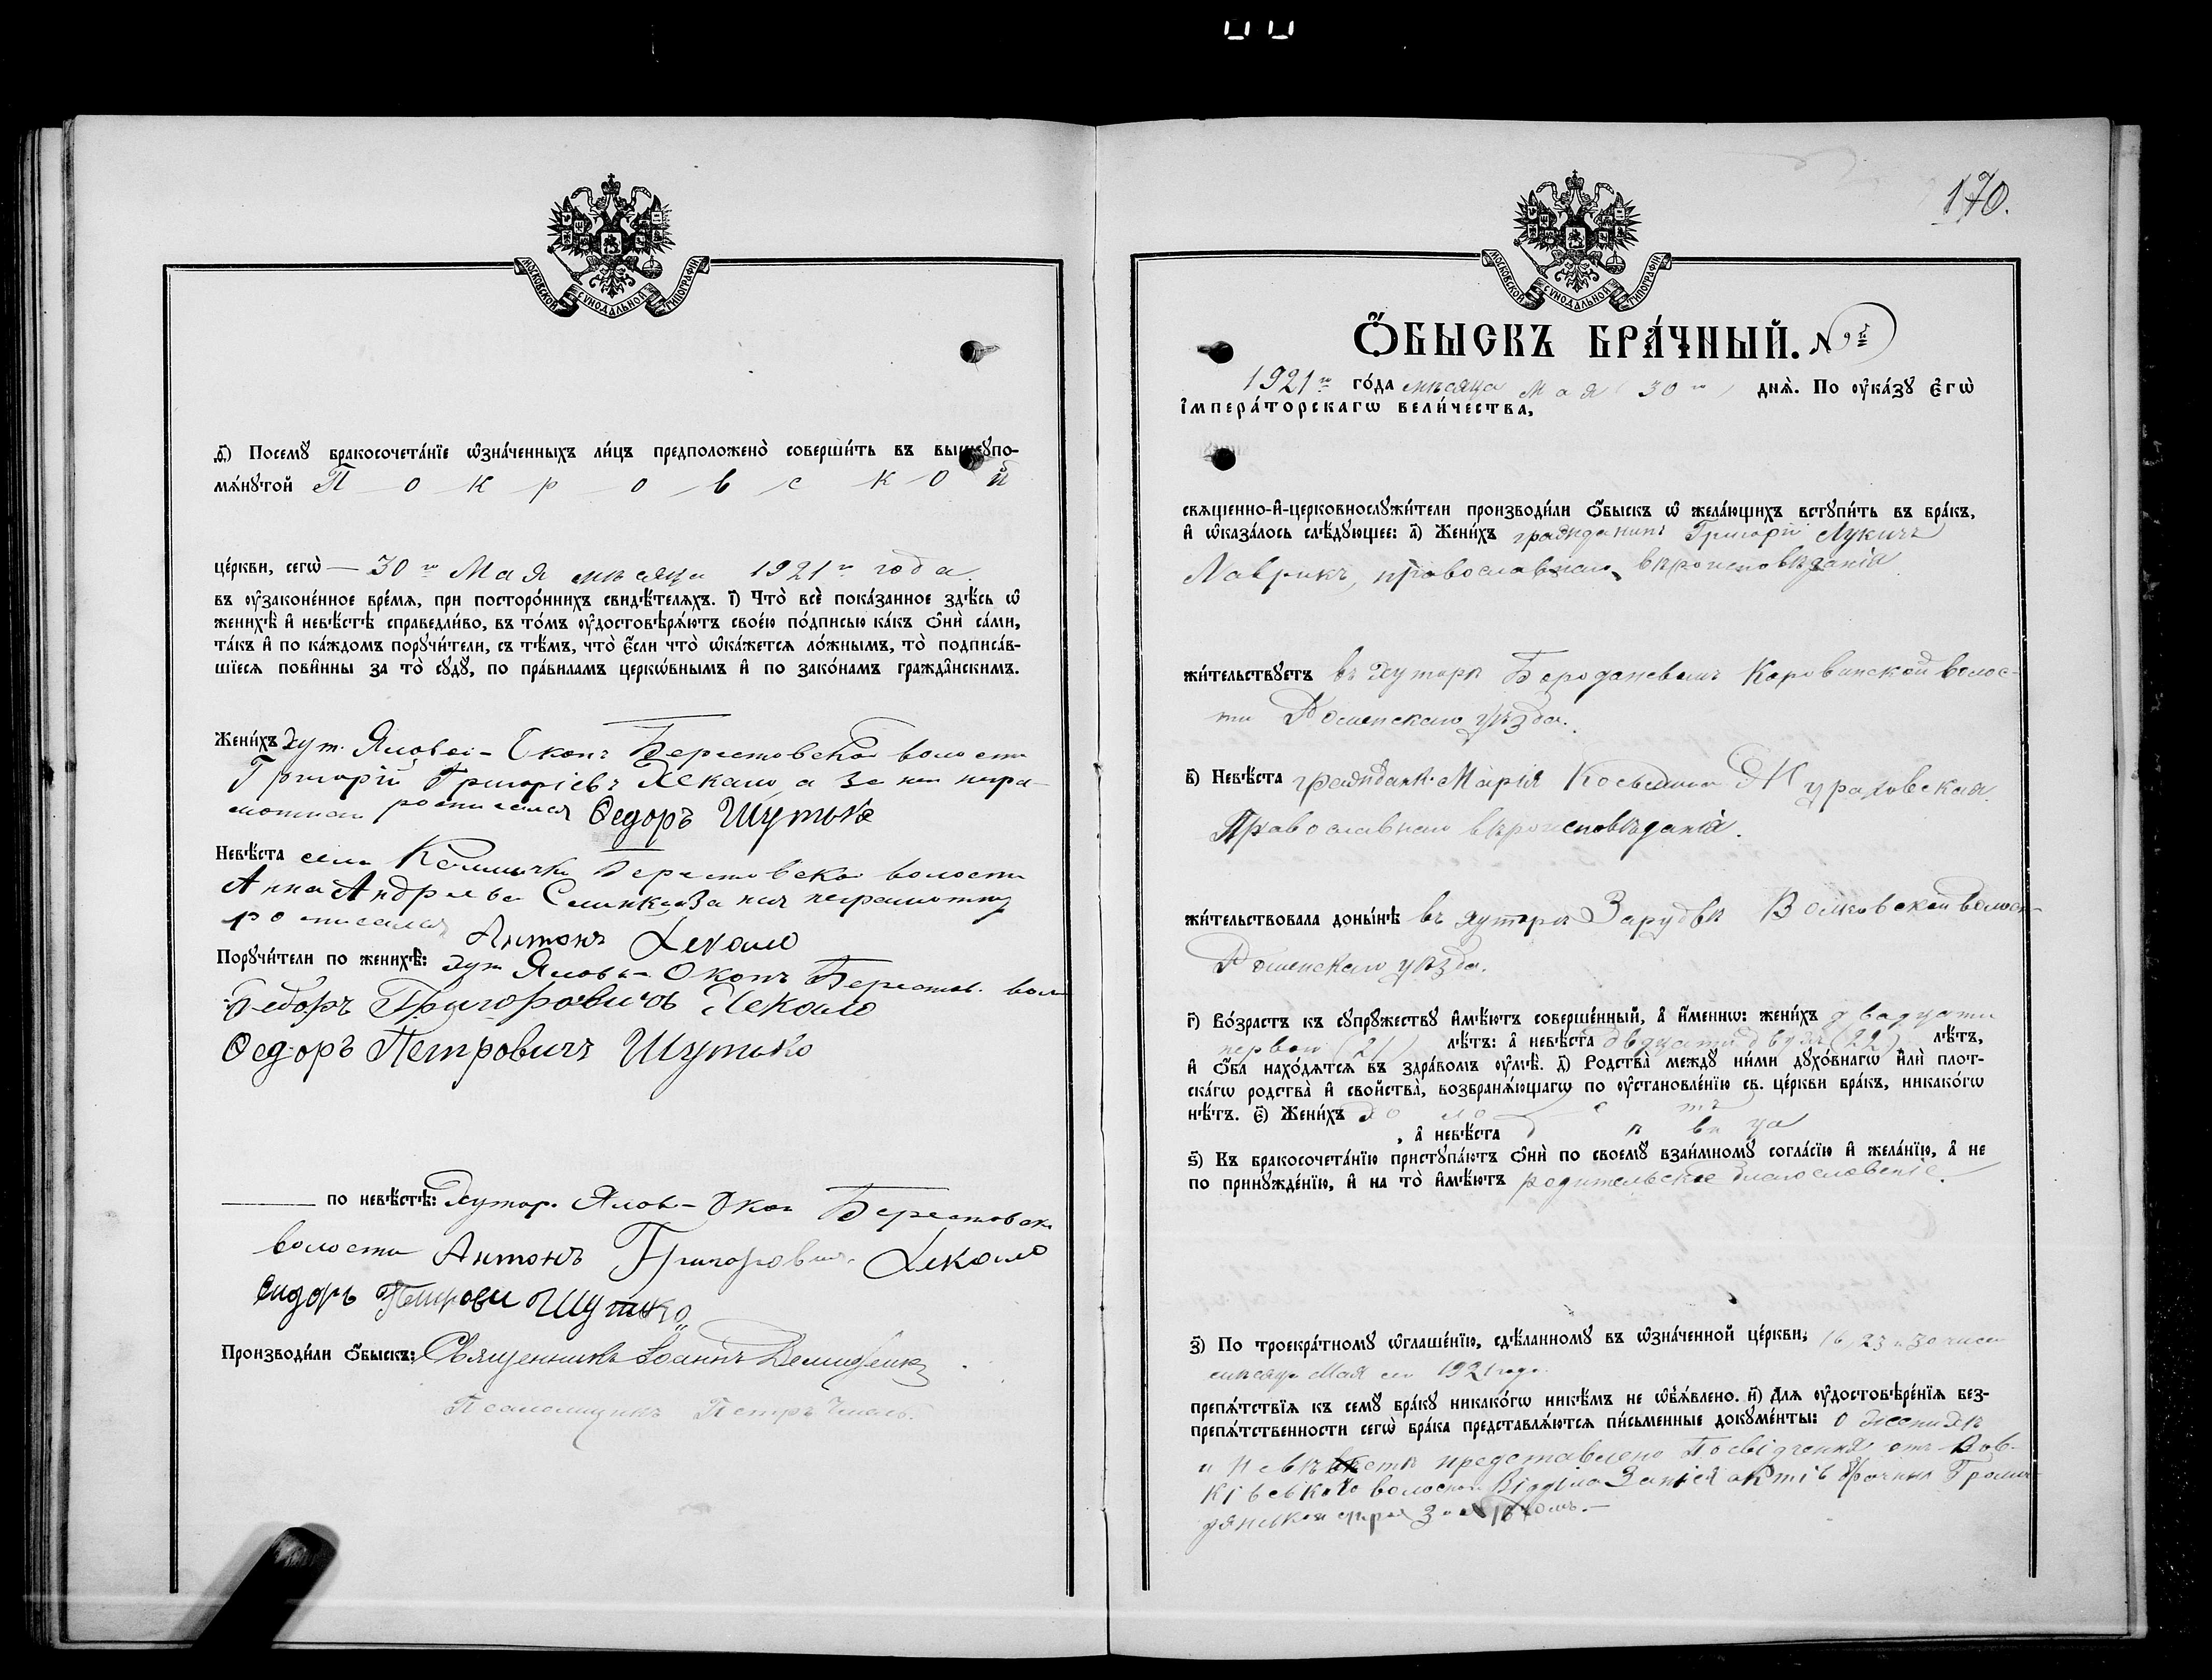 МОСКОВСКОЙ СѴНОДАЛЬНОЙ ТИПОГРАФІИ
ѳ҃) Посемꙋ̀ бракосочета́нїе ѡ҆зна́ченныхъ ли́цъ предположено̀ соверши́ть въ вышеꙋпо-
мѧ́нꙋтой Покровской
це́ркви, сегѡ̀ — 30го Мая мѣсяца 1921го года
въ ᲂу҆законе́нное вре́мѧ, при посторо́ннихъ свидѣ́телѧхъ. і҃) Что̀ всѐ пока́занное здѣ́сь ѡ҆
женихѣ̀ и҆ невѣ́стѣ справедли́во, въ то́мъ ᲂу҆достовѣрѧ́ютъ свое́ю по́дписью ка́къ ѻ҆нѝ са́ми,
та́къ и҆ по ка́ждомъ порꙋчи́тели, съ тѣ́мъ, что̀ є҆́сли что̀ ѡ҆ка́жетсѧ ло́жнымъ, то̀ подписа́в-
шїесѧ пови́нны за то̀ сꙋдꙋ̀, по пра́виламъ церкѡ́внымъ и҆ по зако́намъ гражда́нскимъ.
Жени́хъ хут. Яловой-Окопъ Берестовской волости
Григорій Григоріевъ Чекало, а за него негра-
мотнаго росписался Ѳедоръ Шутько
Невѣ́ста села Берестовской волости
Анна Андреева за нея неграмотную
росписался Антонъ Чекало
Порꙋчи́тели по женихѣ̀: хут Яловы-Окопъ Берестов. вол
Ѳедоръ Григоровичъ Чекало
Ѳедоръ Петровичъ Шутько
по невѣ́стѣ: Хутор. Ялов-Окоп Берестовск
волости Антонъ Григорович. Чекало
Сидоръ Петрови Шутько
Производи́ли ѻ҆́быскъ: Священникъ Іоаннъ
Псаломщикъ Петръ
170.
МОСКОВСКОЙ СѴНОДАЛЬНОЙ ТИПОГРАФІИ
Ѻ҆́БЫСКЪ БРА́ЧНЫЙ. N 9й
1921го го́да мѣсяца Мая 30го днѧ̀. По ᲂу҆ка́зꙋ Є҆гѡ̀
І҆мпера́торскагѡ вели́чества,
свѧщенно-и҆-церковнослꙋжи́тели производи́ли ѻ҆́быскъ ѡ҆ жела́ющихъ встꙋпи́ть въ бра́къ,
и҆ ѡ҆каза́лось слѣ́дꙋющее: а҃) Жени́хъ гражданинъ Григорій Лукичъ
Лаврикъ, православнаго вѣроисповѣданія
жи́тельствꙋетъ въ хуторѣ Бороданевомъ Коровинской волос-
ти Роменскаго уѣзда.
в҃) Невѣ́ста граждан. Марія Косьмина Жураховская.
Православнаго вѣроисповѣданія.
жи́тельствовала доны́нѣ въ хуторѣ Зарудьи Волковской волос-
Роменскаго уѣзда.
г҃) Во́зрастъ къ сꙋпрꙋ́жествꙋ и҆мѣ́ютъ соверше́нный, а҆ и҆́меннѡ: жени́хъ двадцати
перваго (21) лѣ́тъ: а҆ невѣ́ста двадцати двухъ (22) лѣ́тъ,
и҆ ѻ҆́ба нахо́дѧтсѧ въ здра́вомъ ᲂу҆мѣ̀. д҃) Родства̀ междꙋ ни́ми дꙋхо́внагѡ и҆лѝ плот-
ска́гѡ родства̀ и҆ сво́йства̀, возбранѧ́ющагѡ по ᲂу҆становле́нїю св. це́ркви бра́къ, никако́гѡ
нѣ́тъ. є҃) Жени́хъ холостъ
, а҆ невѣ́ста дѣвица
ѕ҃) Къ бракосочета́нїю пристꙋпа́ютъ ѻ҆нѝ по своемꙋ̀ взаи́мномꙋ согла́сїю и҆ жела́нїю, а҆ не
по принꙋжде́нїю, и҆ на то̀ и҆мѣ́ютъ родительское благословеніе.
з҃) По троекра́тномꙋ ѡ҆глаше́нїю, сдѣ́ланномꙋ въ ѡ҆зна́ченной це́ркви, 16, 23 и 30 чисел
мѣсяца Мая сего 1921 года.
препѧ́тствїѧ къ семꙋ̀ бра́кꙋ никако́гѡ никѣ́мъ не ѡ҆б̾ѧ́влено. и҃) Длѧ ᲂу҆достовѣре́нїѧ без-
препѧ́тственности сегѡ̀ бра́ка представлѧ́ютсѧ пи́сьменные докꙋме́нты: о женихѣ
и невѣстѣ представлено Посвідчення отъ Вов-
ківського волосного Відділа Записи актів